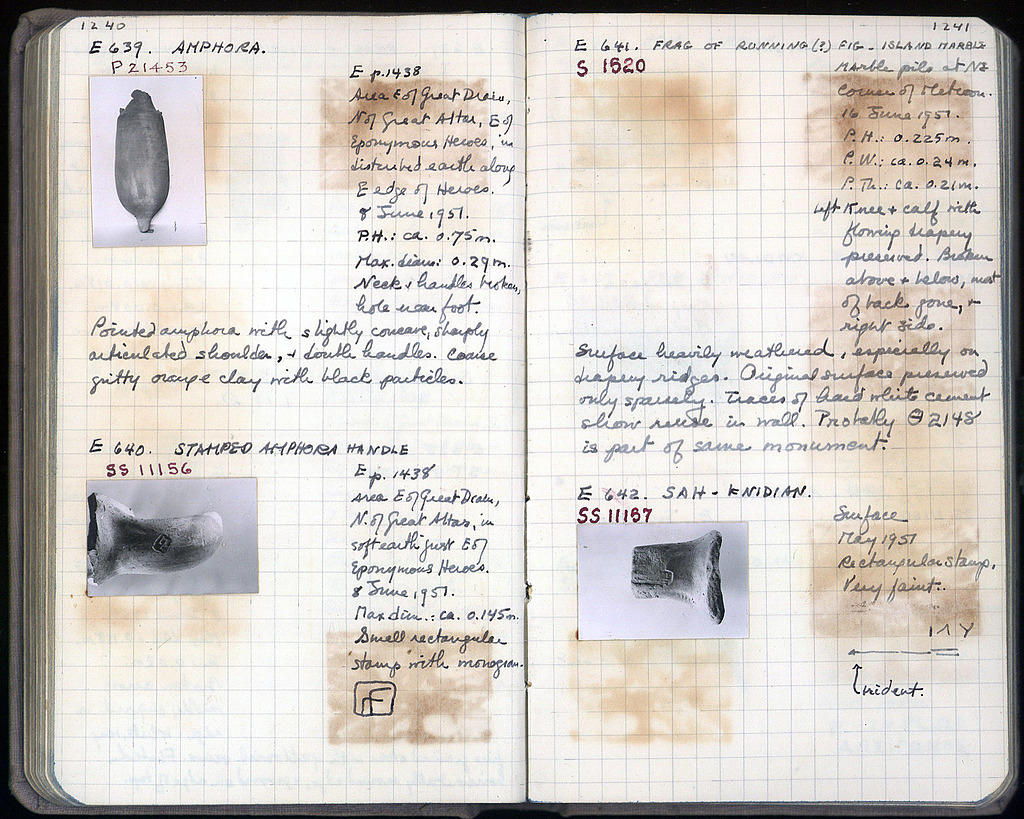 1240
E 639. AMPHORA.
P 21453
E p.1438
Area E of Great Drain,
N of Great Altar, E of
Eponymous Heroes, in
disturbed earth along
E edge of Heroes.
8 June 1951.
P.H.: ca. 0.75m.
Max. diam: 0.29m.
Neck + handles broken,
hole near foot.
Pointed amphora with slightly concave, sharply
articulated shoulder, + double handles. Coarse
gritty orange clay with black particles.
E 640. STAMPED AMPHORA HANDLE
SS 11156
E p. 1438
Area E of Great Drain,
N. of Great Altar, in
soft earth just E of
Eponymous Heroes.
8 June 1951.
Max dim.: ca. 0.145m.
Small rectangular
stamp with monogram.
1241
E 641. FRAG OF RUNNING (?) FIG - ISLAND MARBLE
S 1520
Marble pile at NE
Corner of Metroon.
16 June 1951.
P.H.: 0.225m.
P.W.: ca. 0.24m.
P.Th.: ca. 0.21m.
Left Knee + calf with
flowing drapery
preserved. Broken
above + below, most
of back gone, +
right side.
Surface heavily weathered, especially on
drapery ridges. Original surface preserved
only sparsely. Traces of hard white cement
show reuse in wall. Probably Θ 2148
is part of same monument.
E 642. SAH - KNIDIAN.
SS 11157
Surface
May 1951
Rectangular stamp,
Very faint.
trident.